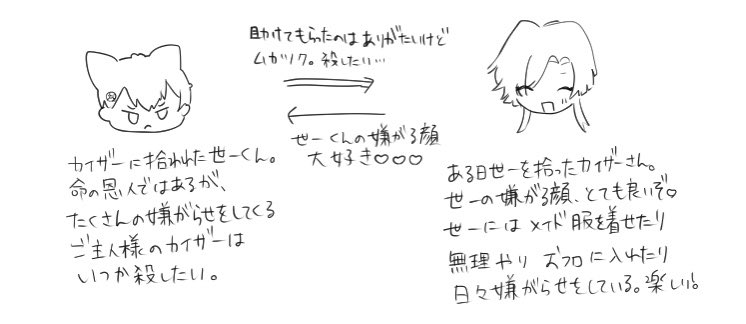 助けてもらったのはありがたいけど
ムカツク。殺したい…
世一くんの嫌がる顔
大好き♡♡♡
カイザーに拾われた世一くん。
命の恩人ではあるが、
たくさんの嫌がらせをしてくる
ご主人様のカイザーは
いつか殺したい。
ある日世一を拾ったカイザーさん。
世一の嫌がる顔、とても良いぞ♡
世一にはメイド服を着せたり
無理やりお風呂に入れたり
日々嫌がらせをしている。楽しい!